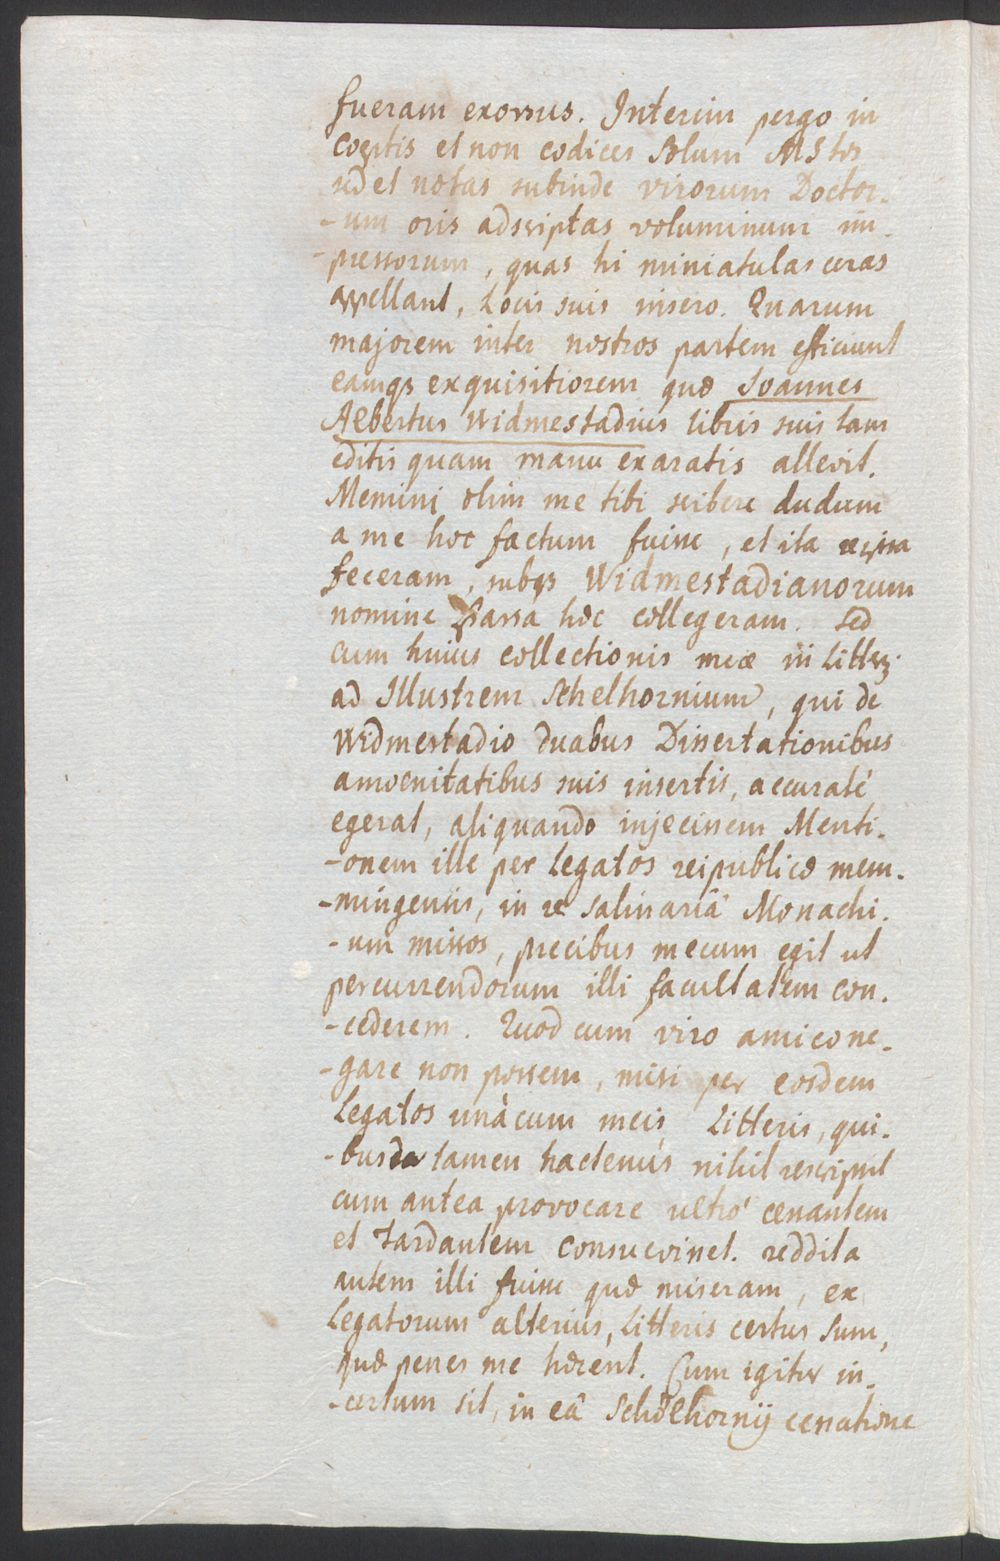 fueram exorsus. Interim pergo in
coeptis et non codices solum MStos
sed et notas subinde virorum Doctor-
-um oris adscriptas voluminum im-
-pressorum, quas hi miniatulas ceras
appellant, Locis suis insero. Quarum
majorem inter nostros partem efficiunt
eamqs exquisitiorem quæ Joannes
Albertus Widmestadius libris suis tam
editis quam manu exaratis allevit.
Memini olim me tibi scribere dudum
a me hoc factum fuisse, et ita
feceram, subqs Widmestadianorum
nomine sparsa hæc collegeram. Sed
cum huius collectionis meæ in Littris
ad Illustrem Schelhornium, qui de
Widmestadio duabus Dissertationibus
amoenitatibus suis insertis, accuratè
egerat, aliquando injecissem Menti-
-onem ille per Legatos reipublicæ mem-
-mingensis, in re salinariâ Monachi-
-um missos, precibus mecum egit ut
percurrendorum illi facultatem con-
-cederem. Quod cum viro amico ne-
-gare non possem, misi per eosdem
Legatos unà cum meis Litteris, qui-
-bus tamen hactenus nihil rescripsit
cum antea provocare ultrò cessantem
et tardantem consuevisset. reddita
autem illi fuisse quæ miseram, ex
Legatorum alterius, Litteris certus sum,
quæ penes me hærent. Cum igitur in-
-certum sit, in eâ Schelhornij cessatione